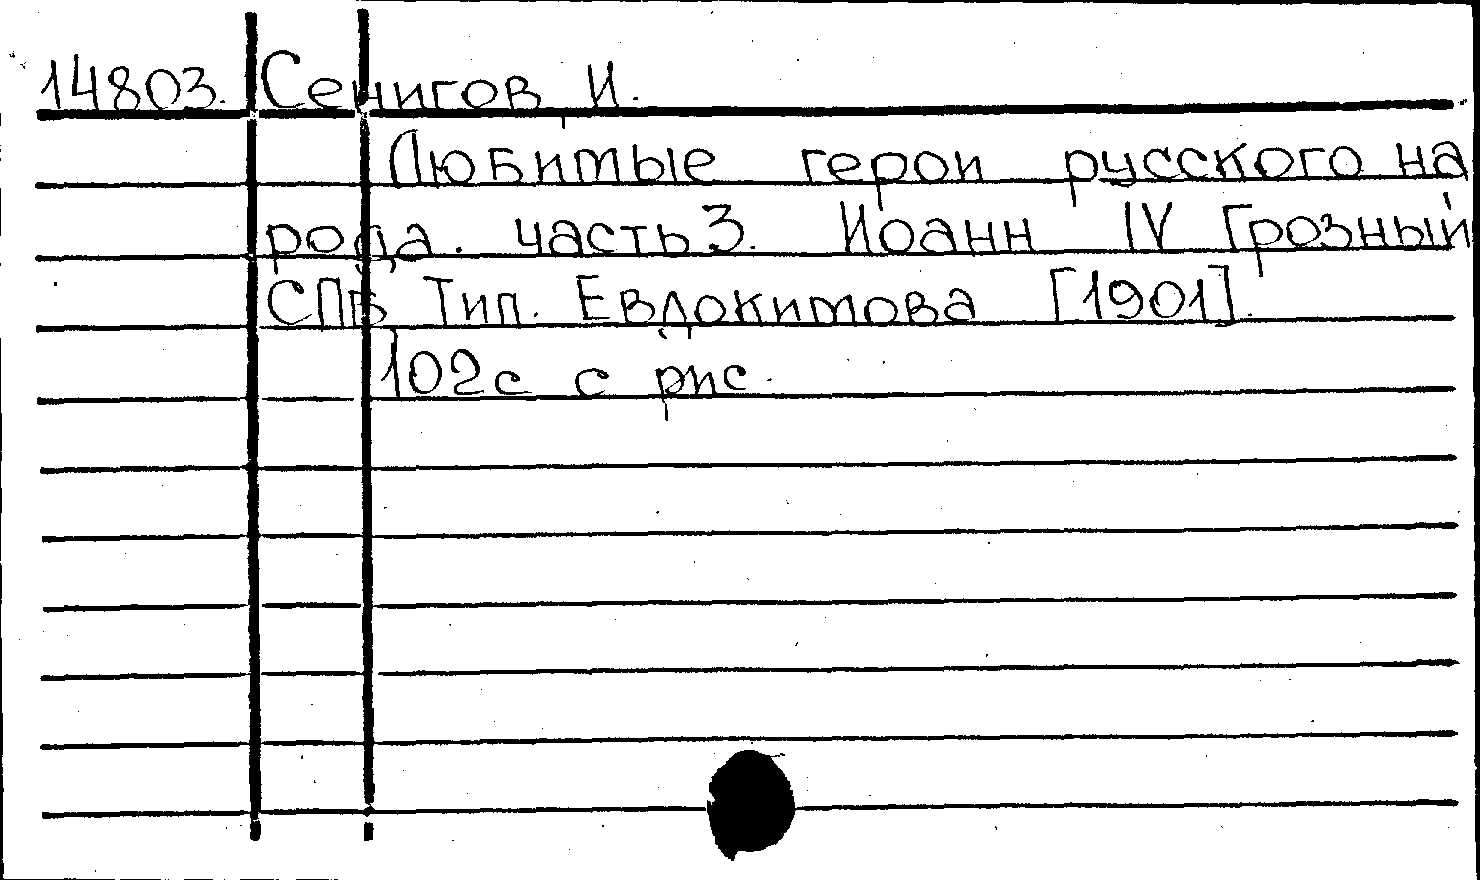 14803. Сенигов И.
Любимые герои русского на
рода. часть 3. Иоанн IV Грозный
СПв Тип. Евдокимова [1901].
102с с рис.